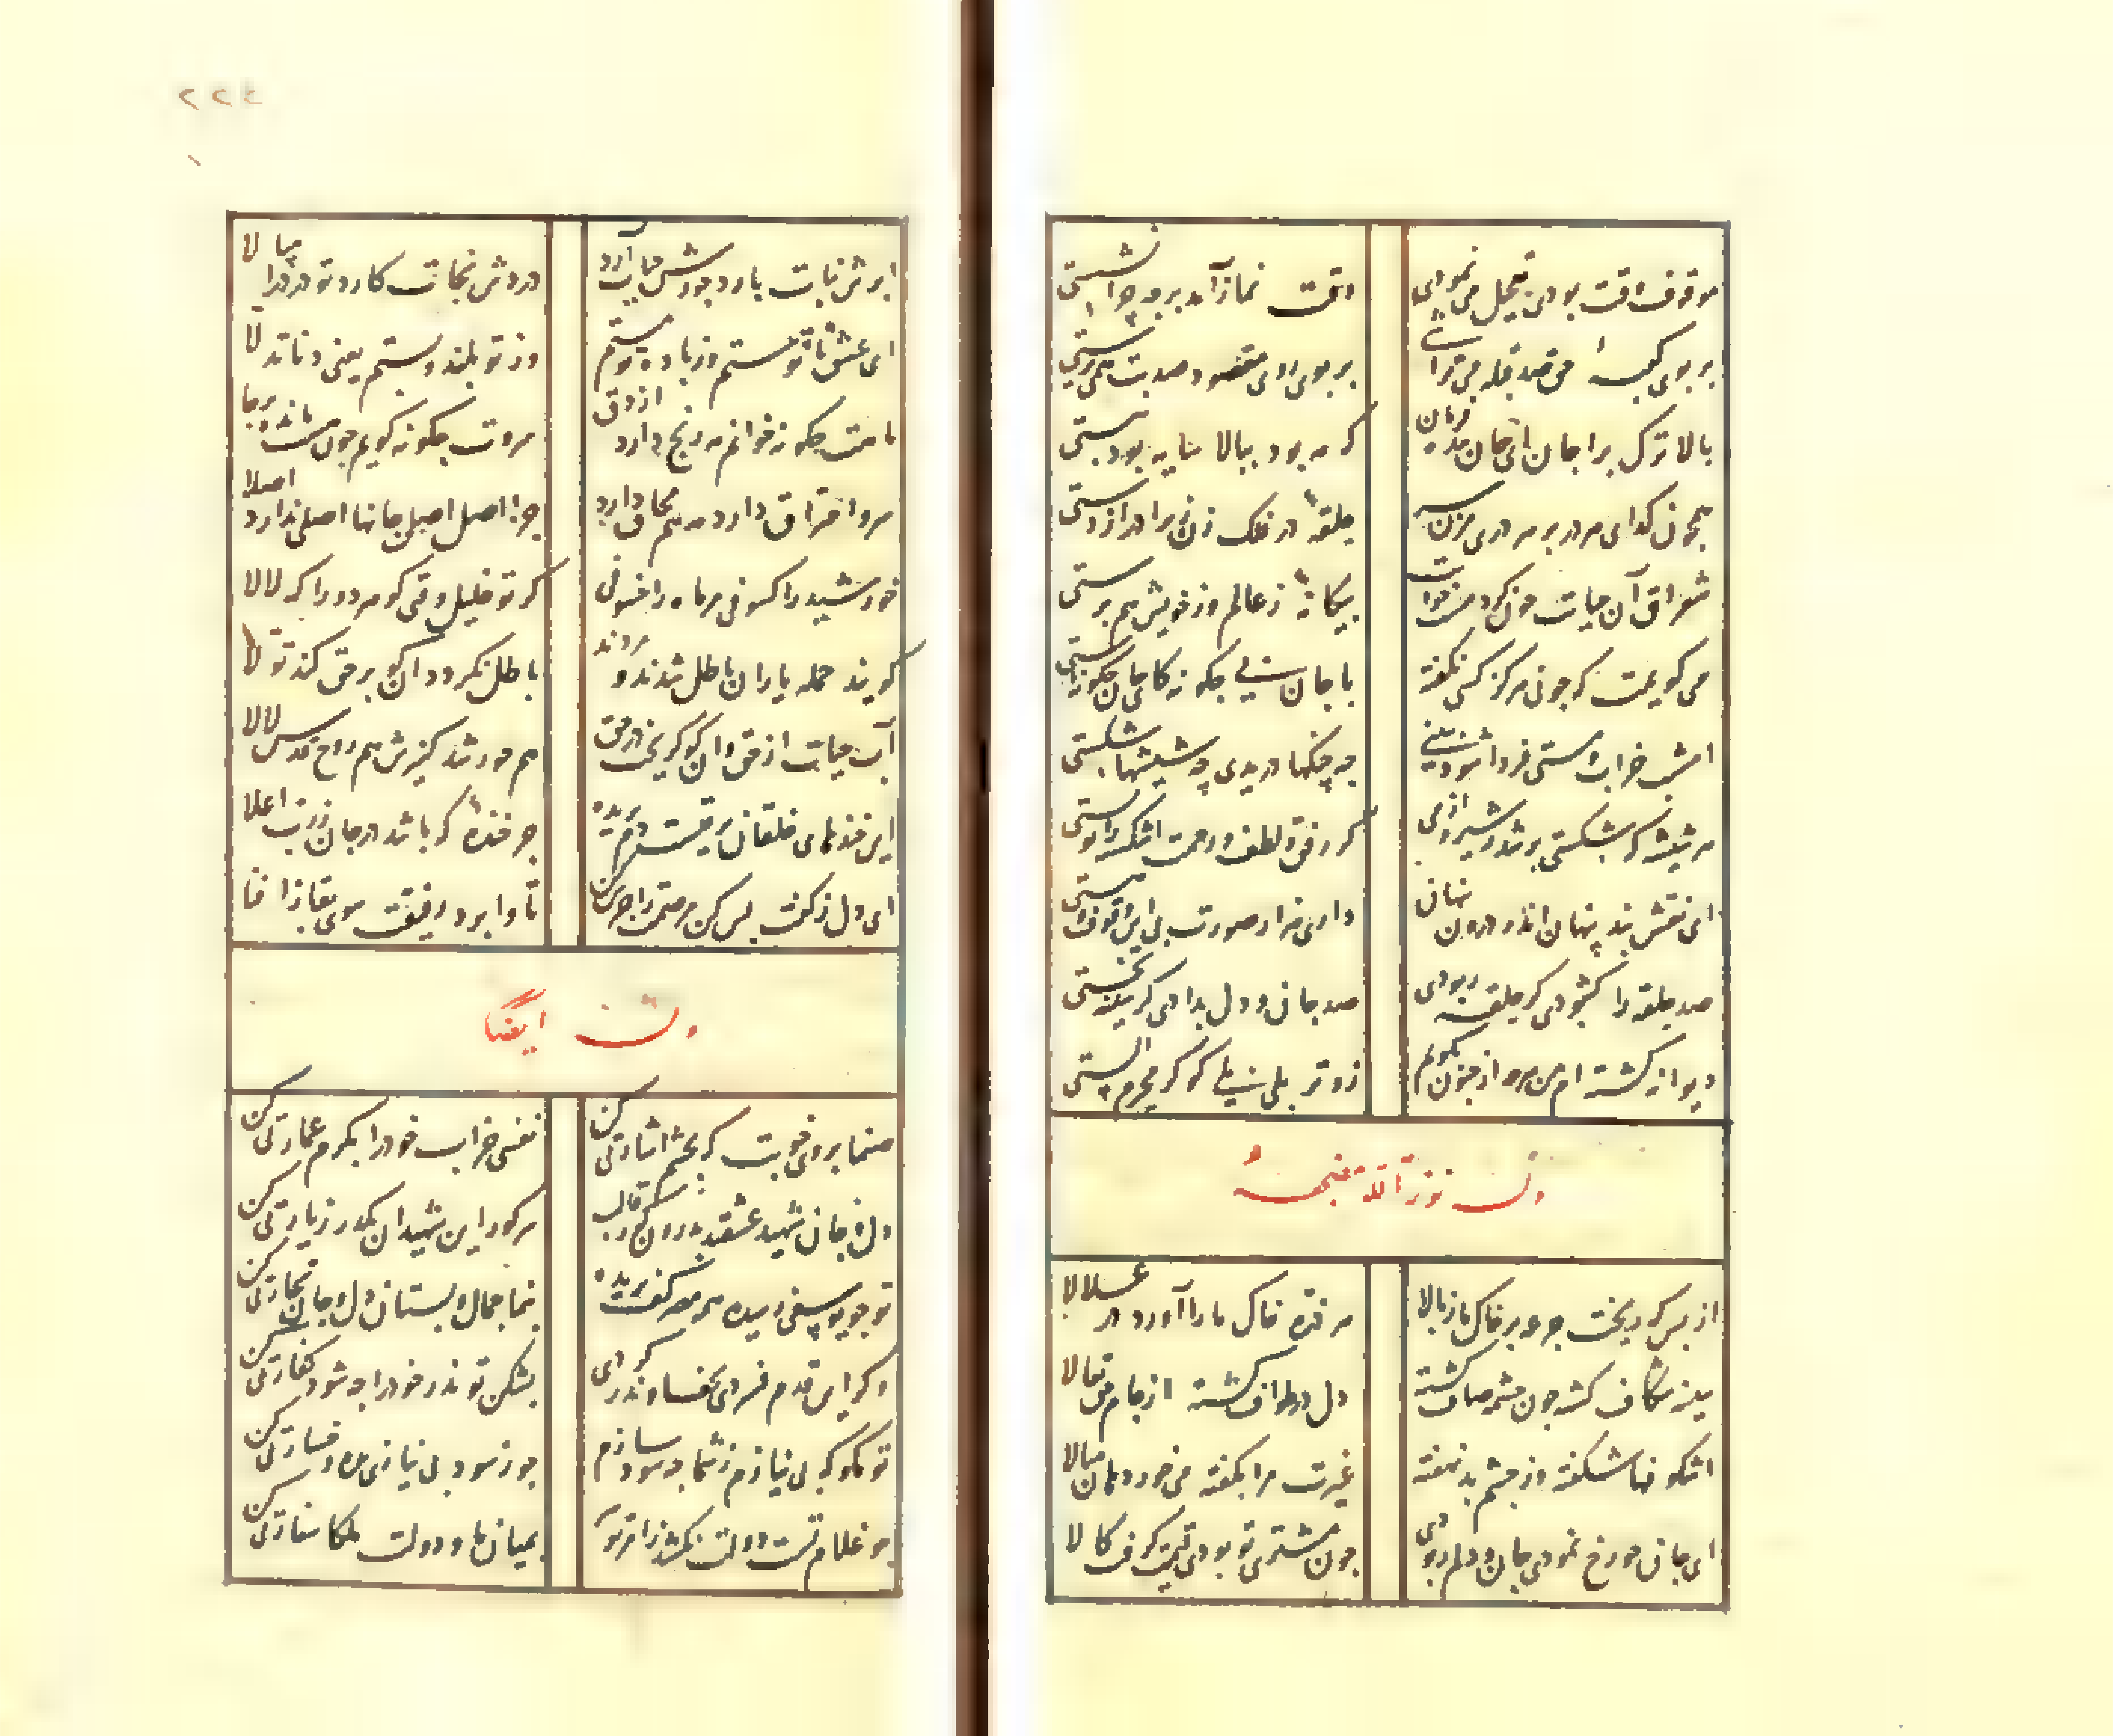 موقوف وقت بودی تعجیل می نمودی
وقت نماز آمد برجه چرا نشستی
بر بوی کعبهٔ می صد قبله می تراشی
بر بوی روی مقصود صد بت همی پرستی
بالاترک برا جان ای جان
که مه بود ببالا سایه بود بپستی
همچون گدای هر در بر هر دری مزن سر
حلقهٔ در فلک زن زیرا دراز دستی
سغراق آن حیات چون کرد
بیکانهٔ ز عالم وز خویش هم برستی
می کویمت که چونی هرکز کسی نکفته
با جان بی چکونه کای جان چکونه استی
امشب خراب و مستی فردا شود ببینی
چه چنکها دریدی چه شیشها شکستی
هر شیشه که شکستی
که رفق و لطف و رحمت اشکسته را
ای نقش بند پنهان اندر درون نهان
داری هزار صورت
صد حلقه را کشودی کر حلقه ربودی
صد جان و دل بدادی کر سینه بخستی
دیوانه کشته ام من هر چه از جنون بکویم
زوتر بلی بلی کو کر محرم الستی
وله نور الله مضجعه
از بس که ریخت جرعه بر خاک ما ز بالا
هر ذرهٔ خاک ما را آورد در علالا
سینه شکاف کشته چون عشق صاف کشته
دل در طواف کشته از جام حق تعالا
اشکوفها شکفته وز چشم بد نهفته
غیرت مرا بکفته می خور دهان میالا
ای جان چو رخ نمودی جان و دلم ربودی
چون مشتری تو بودی قیمت کرفت کالا
ابرش نبات بارد جورش حیات آرد
دردش نجات کارد تو درد را میالا
ای عشق با تو هستم وز باده تو مستم
وز تو بلند و پستم یعنی دنا تدلا
ماهت چکونه خوانم مه رنج دارد از دق
سروت چکونه کویم چون هست مانده برجا
سرو احتراق دارد مه هم محاق دارد
جز اصل اصل جانها اصلی ندارد اصلا
خورشید را کسوفی مر ماه را خسوفی
کر تو خلیل وقتی کو هر دو را که لالا
کویند جمله یاران باطل شدند و مردند
باطل نکردد آن کو بر حق کند تولا
آب حیات از حق و آن کو کریخت در حق
هم حور شد کنیزش هم روح قدس لالا
این خندهای خلقان برقیست دم بریده
جز خندهٔ که باشد در جان ز رب اعلا
ای دل ز کفت بس کن مر صمت را
تا وا برد رفیقت سوی بقا ز افنا
وله ایضا
صنما بروی خوبت که بچشم اشارتی کن
نفسی خراب خود را بکرم عمارتی کن
دل و جان شهید عشقت بدرون کور قالب
سر کور این شهیدان بکذر زیارتی کن
تو چو یوسفی رسیده همه مصر کف بریده
بنما جمال و بستان دل و جان تجارتی کن
وکر این قدم فسردی بجفا و نذر کردی
بشکن تو نذر خود را چه شود کفارتی کن
تو مکو که بی نیازم ز شما چه سود سازم
چو ز سود بی نیازی برو و خسارتی کن
چو غلام تست دولت نکشد ز امر تو سر
بمیان ما و دولت ملکا سفارتی کن